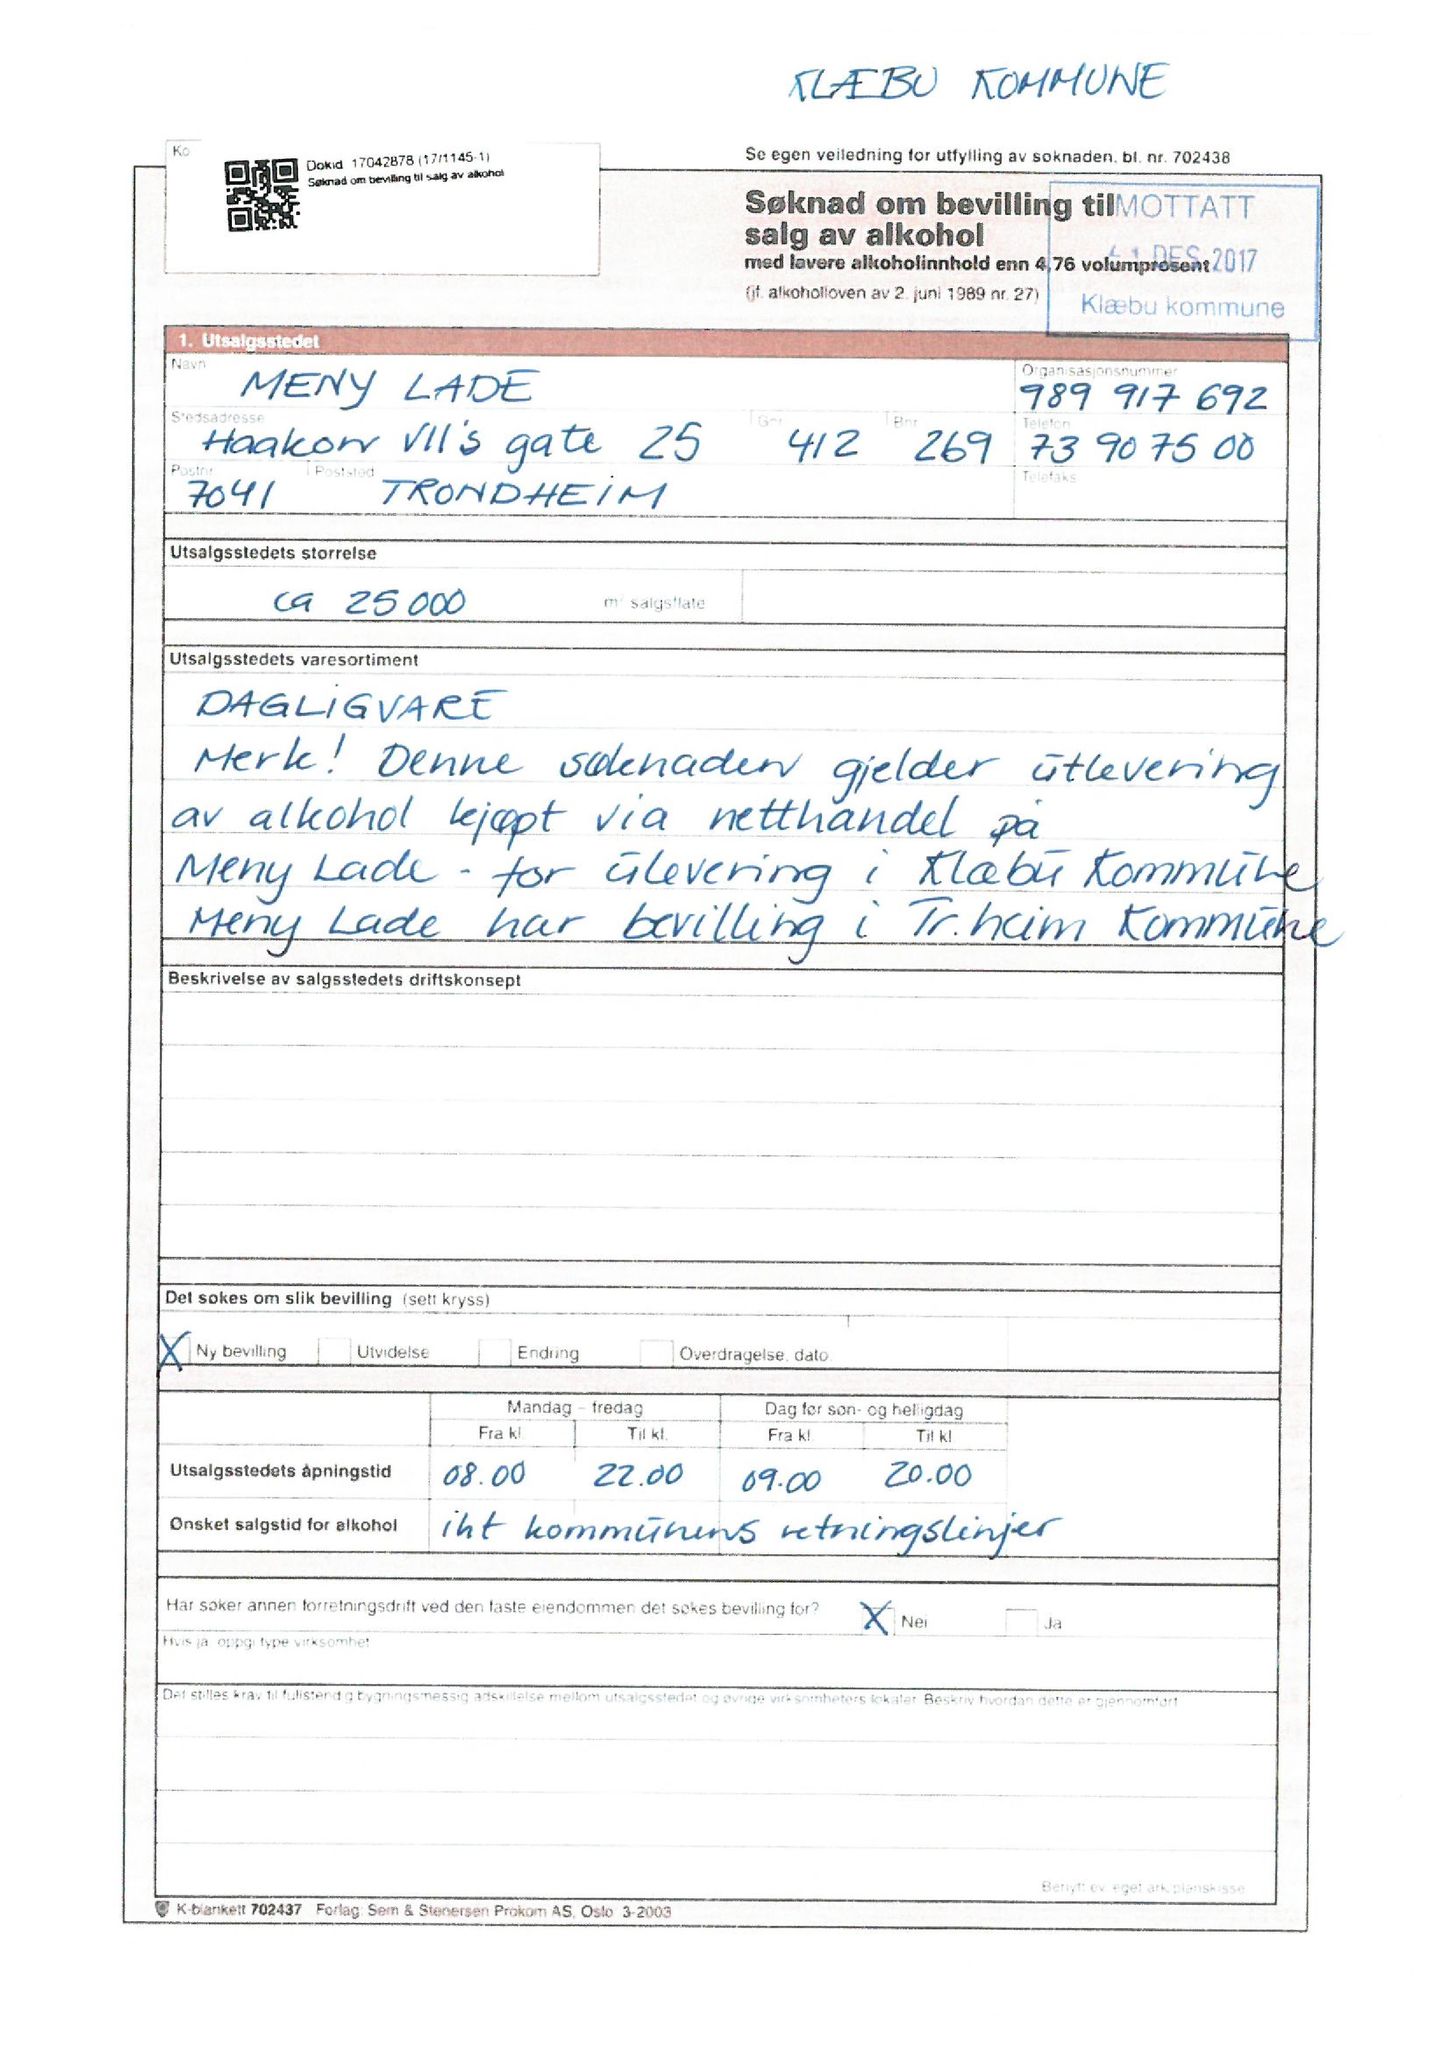 KLÆBU KOMMUNE
Ko
Dokid 17042878 (17/1145-1)
Søknad om bevilling til salg av alkohol
Se egen veiledning for utfylling av søknaden, bl. nr. 702438
Søknad om bevilling til
salg av alkohol
med lavere alkoholinnhold enn 4,76 volumprosent
(jf. alkoholloven av 2. juni 1989 nr. 27)
MOTTATT
DES 2017
Klæbu kommune
1. Utsalgsstedet
Navn Organisasjonsnummer
MENY LADE 989 917 692
Stedsadresse Gnr Bnr Telefon
Haakon VII's gate 25 412 269 73 90 75 00
Postnr Poststed Telefaks
7041 TRONDHEIM
Utsalgsstedets størrelse
ca 25000 m² salgsflate
Utsalgsstedets varesortiment
DAGLIGVARE
Merk! Denne søknaden gjelder utlevering
av alkohol kjøpt via netthandel på
Meny Lade - for ulevering i Klæbu Kommune
Meny Lade har bevilling i Tr.heim Kommune
Beskrivelse av salgsstedets driftskonsept
Det søkes om slik bevilling (sett kryss)
X Ny bevilling Utvidelse Endring Overdragelse, dato
Mandag - fredag Dag før søn- og helligdag
Fra kl. Til kl. Fra kl. Til kl.
Utsalgsstedets åpningstid 08.00 22.00 09.00 20.00
Ønsket salgstid for alkohol iht kommunens retningslinjer
Har søker annen forretningsdrift ved den faste eiendommen det søkes bevilling for? X Nei Ja
Hvis ja, oppgi type virksomhet
Det stilles krav til fullstendig bygningsmessig adskillelse mellom utsalgsstedet og øvrige virksomheters lokaler. Beskriv hvordan dette er gjennomført
Benytt ev. eget ark/planskisse
K-blankett 702437 Forlag: Sem & Stenersen Prokom AS, Oslo 3-2003